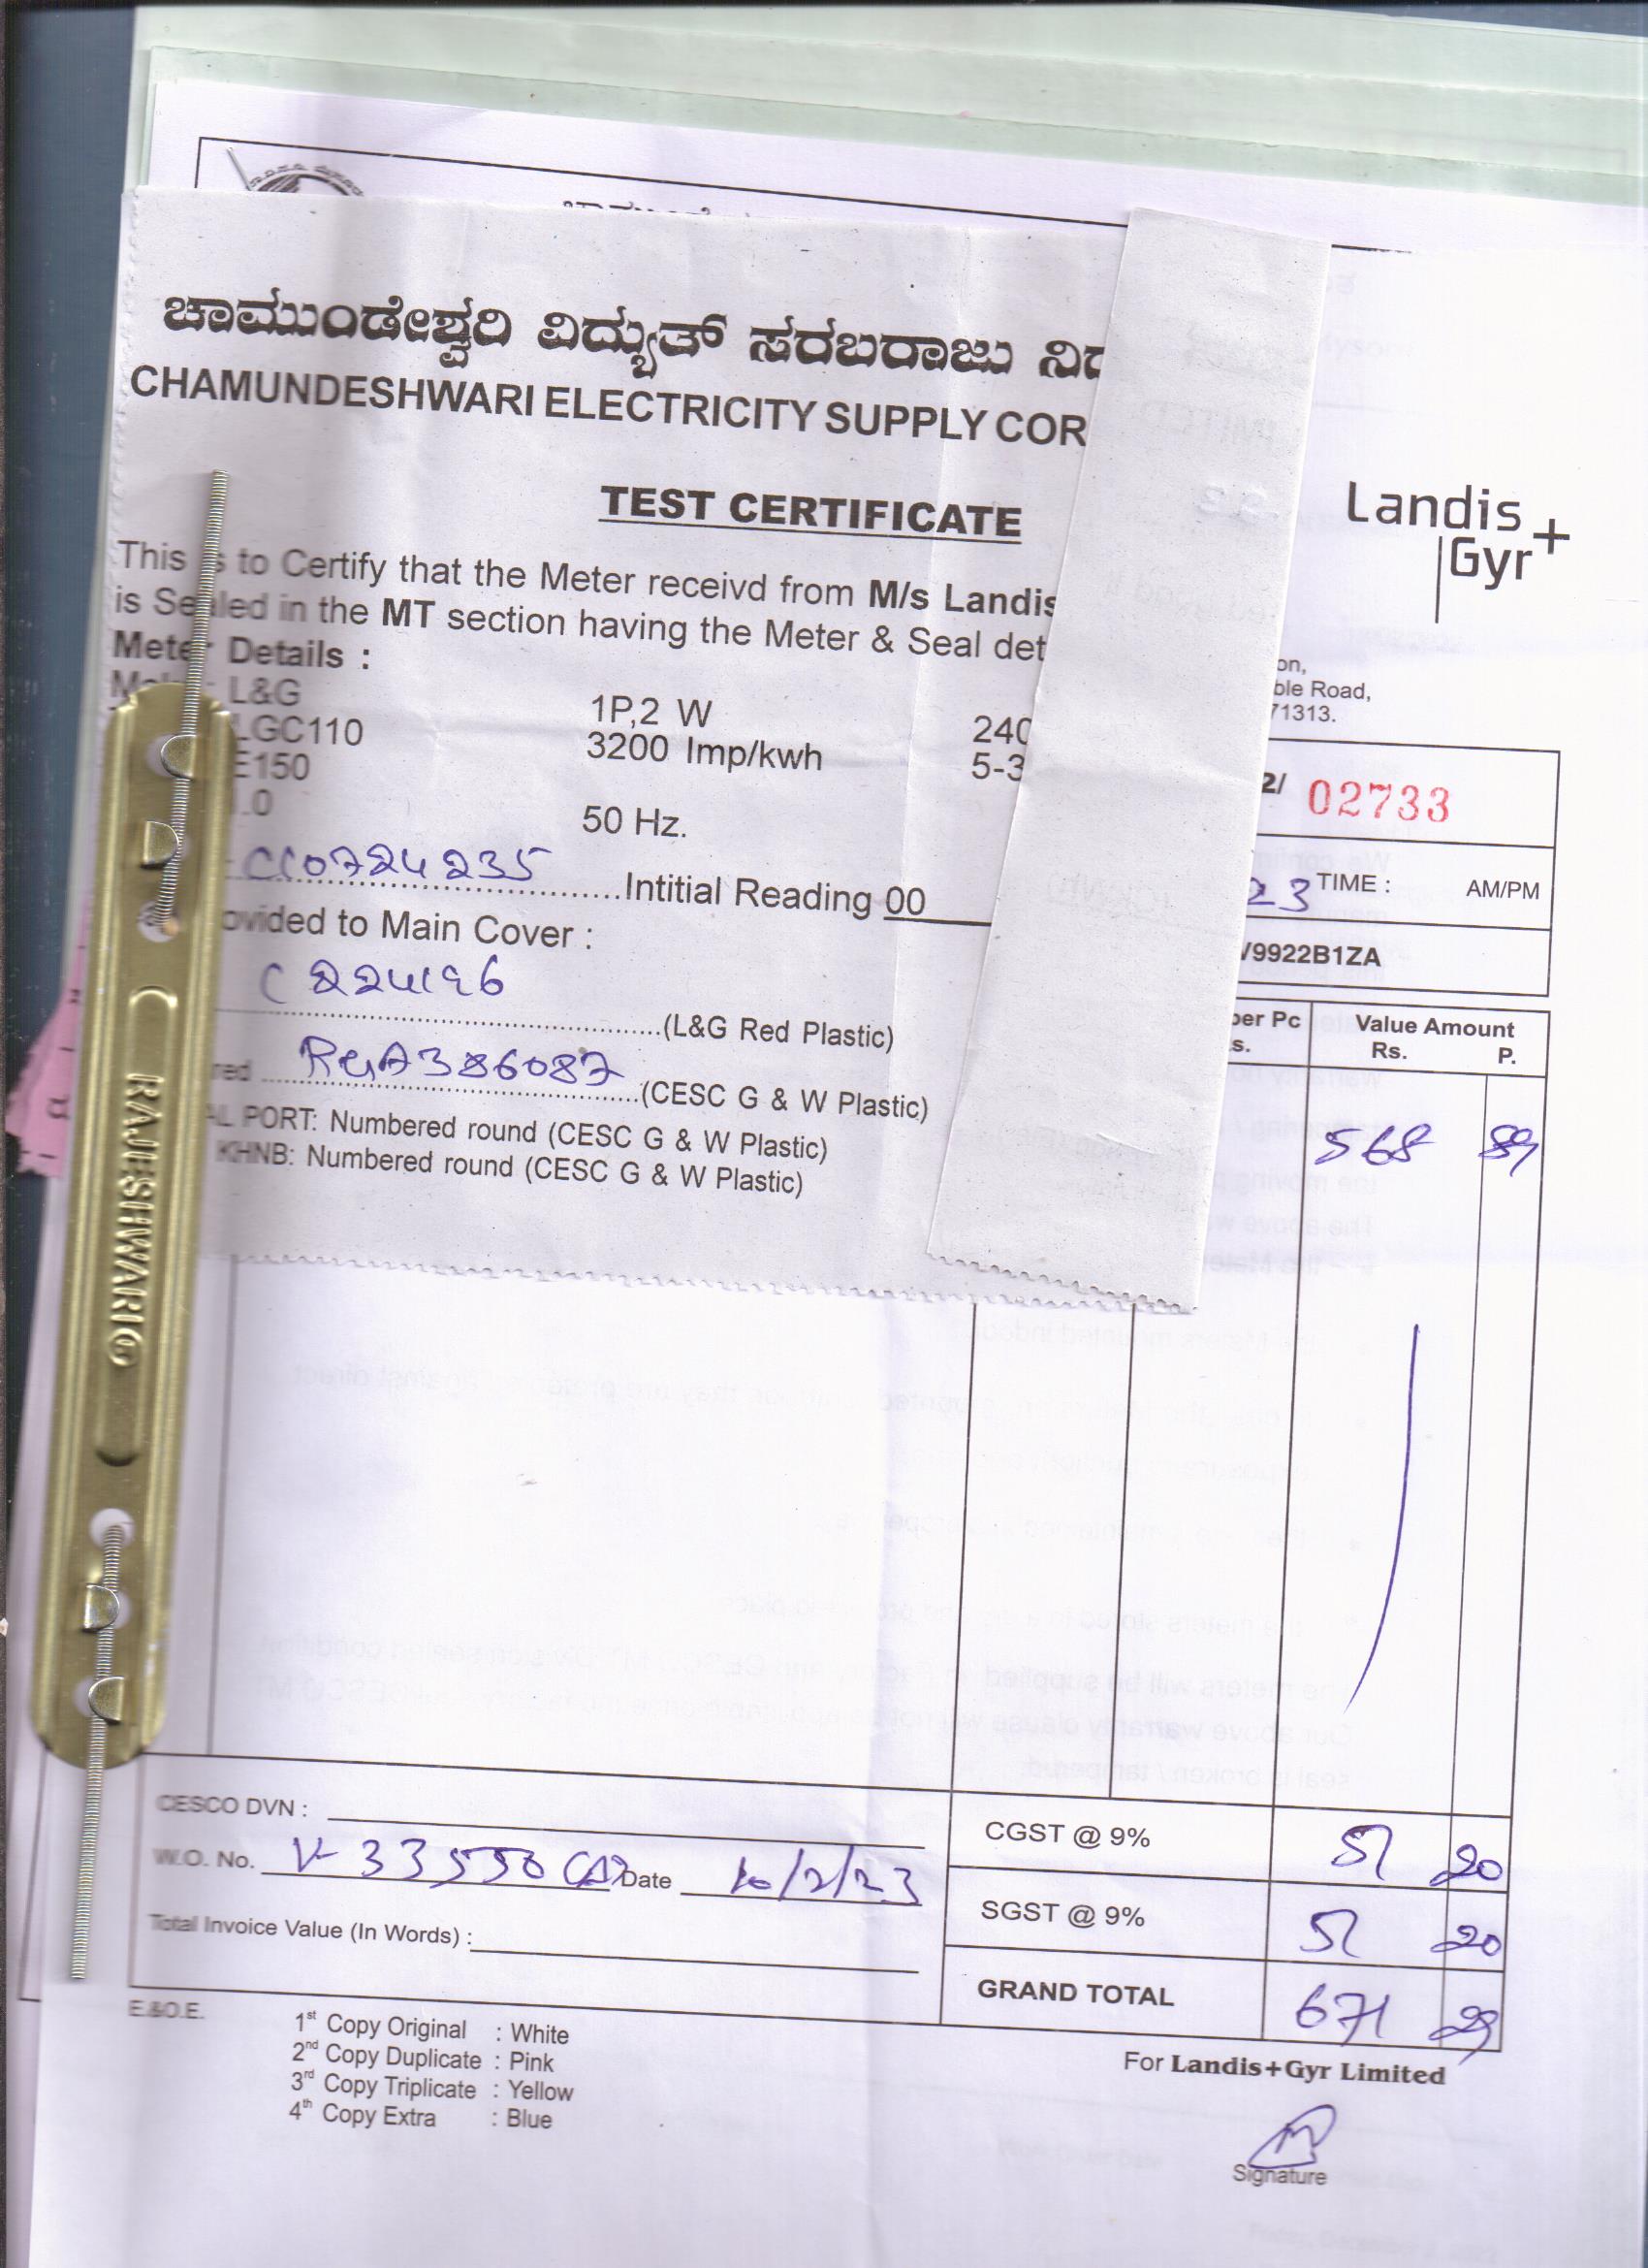 ಚಾಮುಂಡೇಶ್ವರಿ ವಿದ್ಯುತ್ ಸರಬರಾಜು
CHAMUNDESHWARI ELECTRICITY SUPPLY COR
TEST CERTIFICATE
This is to Certify that the Meter receivd from M/s Landis
is Sealed in the MT section having the Meter & Seal det
Meter Details :
L&G
1P,2 W
240
LGC110
3200 Imp/kwh
5-3
E150
1.0
50 Hz.
C10724235 Intitial Reading 00
ovided to Main Cover :
C 224196
(L&G Red Plastic)
red RGA386087 (CESC G & W Plastic)
AL PORT: Numbered round (CESC G & W Plastic)
KHNB: Numbered round (CESC G & W Plastic)
RAJESHWARI
Landis
Gyr+
on,
ble Road,
71313.
2/ 02733
23 TIME : AM/PM
/9922B1ZA
per Pc
s.
Value Amount
Rs. P.
568 89
CESCO DVN :
W.O. No. V-33550 Date 10/2/23
Total Invoice Value (In Words) :
CGST @ 9% 51 20
SGST @ 9% 51 20
GRAND TOTAL 671 29
E.&O.E.
1st Copy Original : White
2nd Copy Duplicate : Pink
3rd Copy Triplicate : Yellow
4th Copy Extra : Blue
For Landis+Gyr Limited
Signature